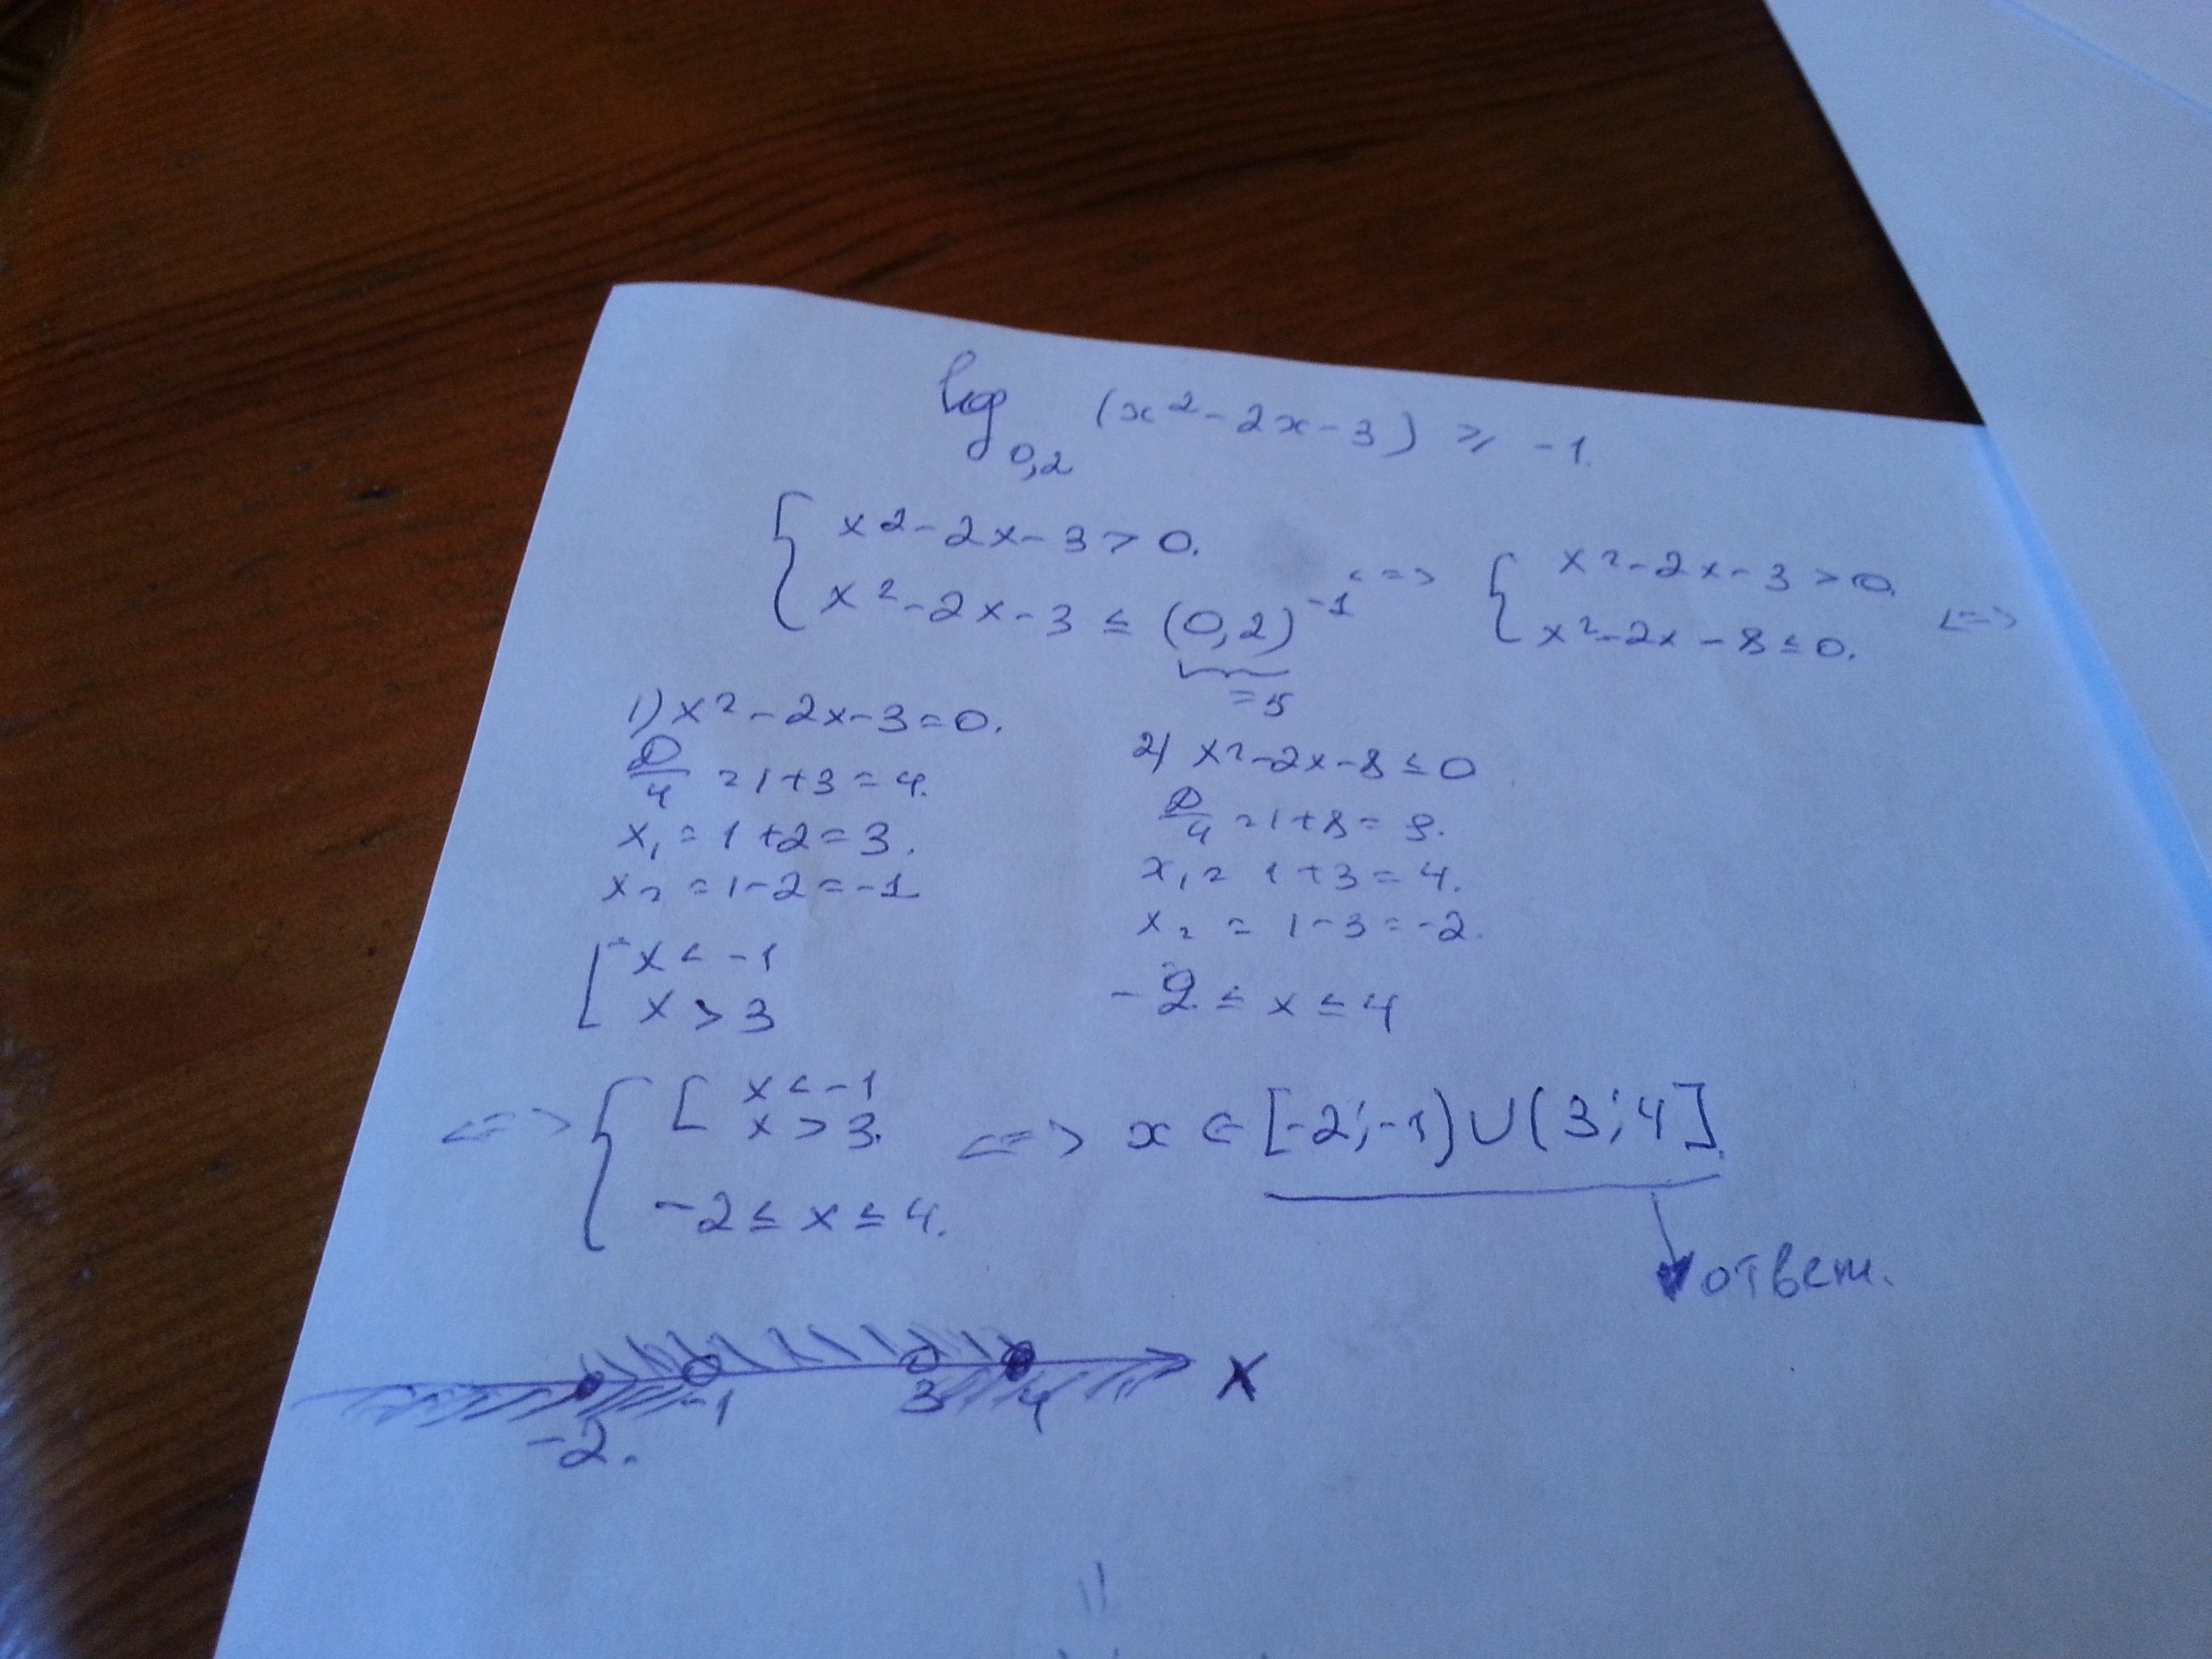 log₀,₂ (x² - 2x - 3) ⩾ -1.
{ x² - 2x - 3 > 0.
x² - 2x - 3 ≤ (0,2)⁻¹ <=> { x² - 2x - 3 > 0.
x² - 2x - 8 ≤ 0. <=>
= 5
1) x² - 2x - 3 = 0.
D/4 = 1 + 3 = 4.
x₁ = 1 + 2 = 3.
x₂ = 1 - 2 = -1
[ x < -1
x > 3
2) x² - 2x - 8 ≤ 0
D/4 = 1 + 8 = 9.
x₁ = 1 + 3 = 4.
x₂ = 1 - 3 = -2.
-2 ≤ x ≤ 4
<=> { [ x < -1
x > 3.
-2 ≤ x ≤ 4.
<=> x ∈ [-2; -1) ∪ (3; 4].
ответ.
-2. -1 3 4 X